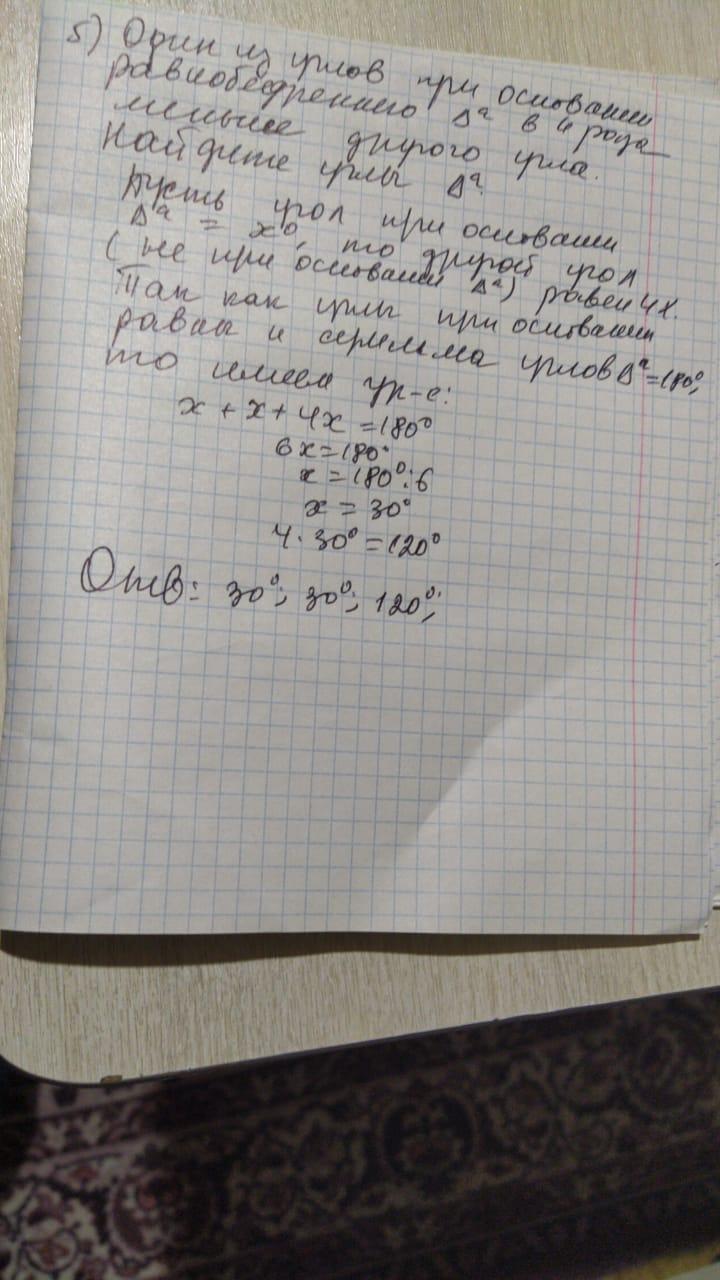 5) Один из углов при основании
равнобедренного Δа в 4 раза
меньше другого угла.
Найдите углы Δа.
Пусть угол при основании
Δа = x°, то другой угол
(не при основании Δа) равен 4x.
Так как углы при основании
равны и сумма углов Δа = 180°,
то имеем ур-е:
x + x + 4x = 180°
6x = 180°
x = 180° : 6
x = 30°
4 · 30° = 120°
Отв: 30°; 30°; 120°;